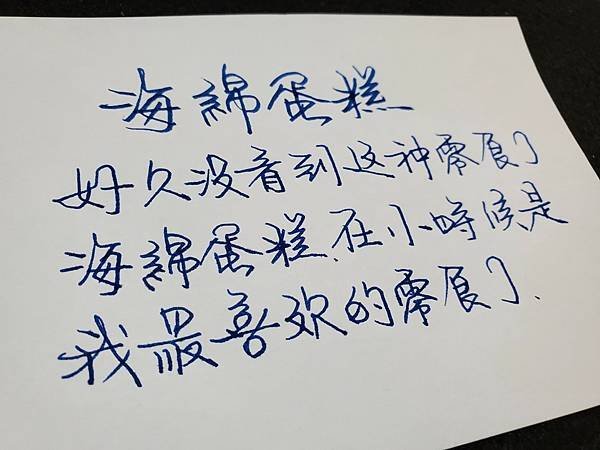 海綿蛋糕
好久没看到这种零食了
海綿蛋糕.在小時候是
我最喜欢的零食了.